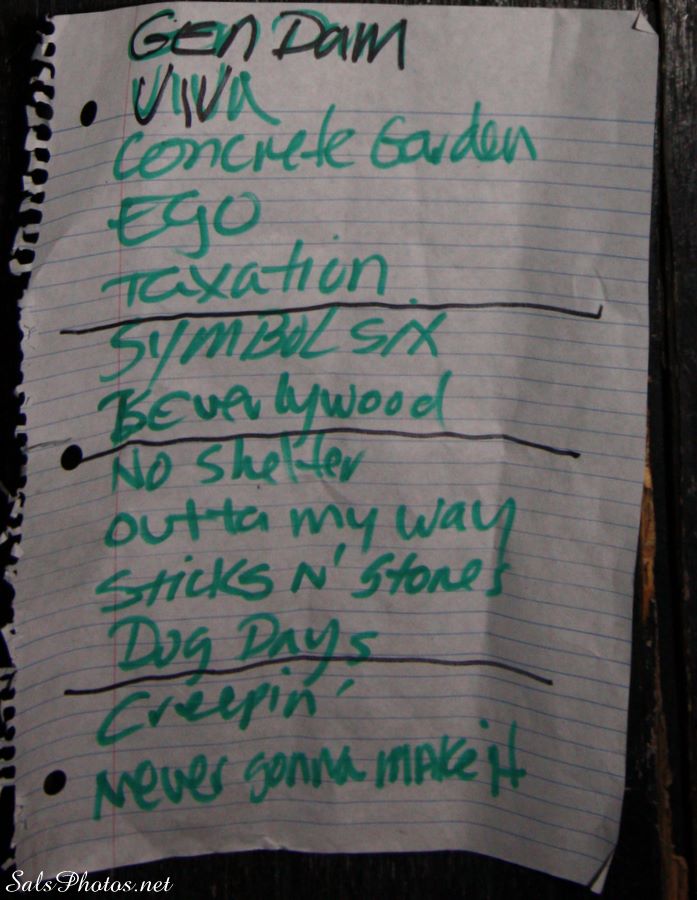 GEN Dam
VIVA
Concrete Garden
EGO
Taxation
SYMBOL SIX
BEverlywood
No Shelter
outta my way
Sticks N' Stones
Dog Days
Creepin'
Never gonna make it
SalsPhotos.net